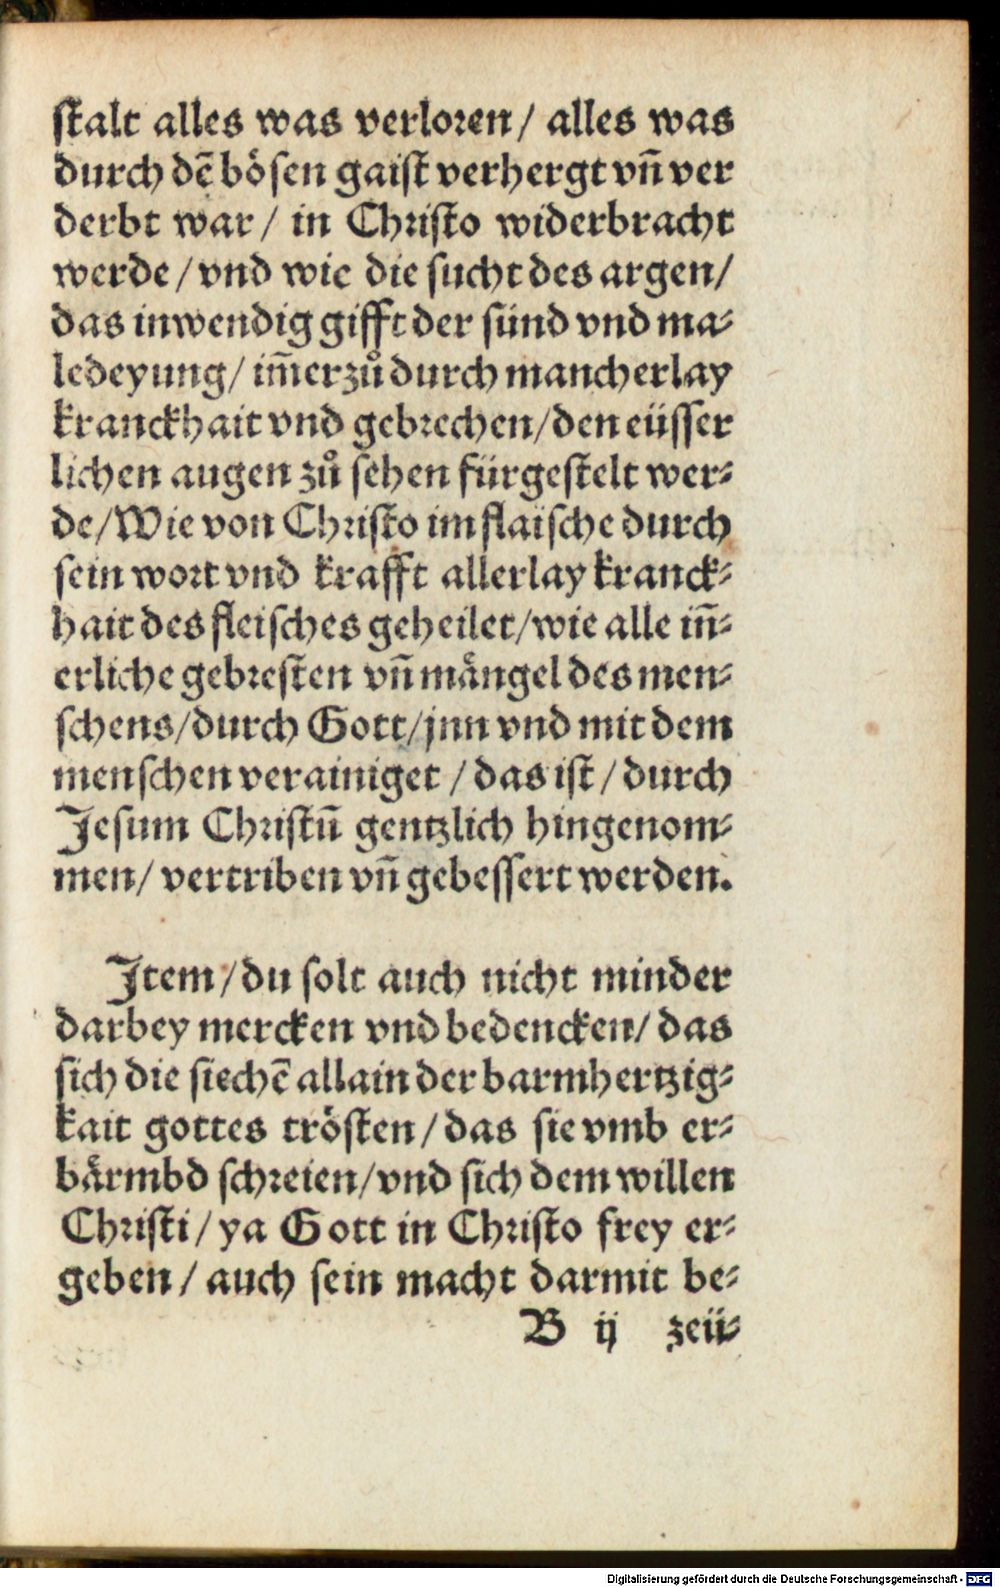 ſtalt alles was verloꝛen/ alles was
durch dē böſen gaiſt verhergt vn̄ ver
derbt war/ in Chꝛiſto widerbracht
werde/vnd wie die ſucht des argen/
das inwendig gifft der ſünd vnd ma⸗
ledeyung/ im̄erzů durch mancherlay
kranckhait vnd gebꝛechen/den eüſſer
lichen augen zů ſehen fürgeſtelt wer⸗
de/Wie von Chꝛiſto im flaiſche durch
ſein woꝛt vnd krafft allerlay kranck⸗
hait des fleiſches geheilet/wie alle in̄⸗
erliche gebꝛeſten vn̄ mängel des men⸗
ſchens/durch Gott/jnn vnd mit dem
menſchen verainiget /das iſt/durch
Jeſum Chꝛiſtū gentzlich hingenom⸗
men/ vertriben vn̄ gebeſſert werden.
Item/du ſolt auch nicht minder
darbey mercken vnd bedencken/ das
ſich die ſiechē allain der barmhertzig⸗
kait gottes tröſten/das ſie vmb er⸗
bärmbd ſchꝛeien/vnd ſich dem willen
Chꝛiſti/ ya Gott in Chꝛiſto frey er⸗
geben/ auch ſein macht darmit be⸗
B ij zeü⸗
Digitalisierung gefördert durch die Deutsche Forschungsgemeinschaft - DFG